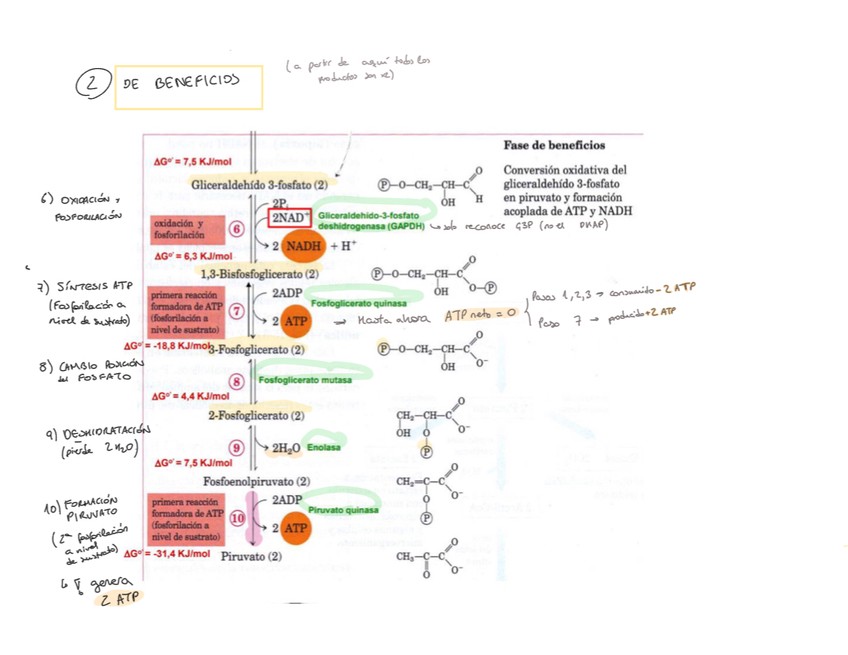 2 DE BENEFICIOS
(a partir de aquí todos los
productos son x2)
Fase de beneficios
Conversión oxidativa del
gliceraldehído 3-fosfato
en piruvato y formación
acoplada de ATP y NADH
ΔGº' = 7,5 KJ/mol
Gliceraldehído 3-fosfato (2)
P-O-CH₂-CH-C
O
H
OH
6) OXIDACIÓN Y
FOSFORILACIÓN
oxidación y
fosforilación
6
2Pi
2NAD⁺
2 NADH + H⁺
Gliceraldehido-3-fosfato
deshidrogenasa (GAPDH)
↳ solo reconoce G3P (no el DHAP)
ΔGº' = 6,3 KJ/mol
1,3-Bisfosfoglicerato (2)
P-O-CH₂-CH-C
O
O-P
OH
7) SÍNTESIS ATP
(Fosforilación a
nivel de sustrato)
primera reacción
formadora de ATP
(fosforilación a
nivel de sustrato)
7
2ADP
2 ATP
Fosfoglicerato quinasa
→ Hasta ahora ATP neto = 0
Pasos 1,2,3 → consumido -2 ATP
Paso 7 → producido +2 ATP
ΔGº' = -18,8 KJ/mol
3-Fosfoglicerato (2)
P-O-CH₂-CH-C
O
O⁻
OH
8) CAMBIO POSICIÓN
del FOSFATO
8
Fosfoglicerato mutasa
ΔGº' = 4,4 KJ/mol
2-Fosfoglicerato (2)
CH₂-CH-C
O
O⁻
OH O
P
9) DESHIDRATACIÓN
(pierde 2H₂O)
9
2H₂O
Enolasa
ΔGº' = 7,5 KJ/mol
Fosfoenolpiruvato (2)
CH₂=C-C
O
O⁻
O
P
10) FORMACIÓN
PIRUVATO
(2ª fosforilación
a nivel
de sustrato)
↳ genera
2 ATP
primera reacción
formadora de ATP
(fosforilación a
nivel de sustrato)
10
2ADP
2 ATP
Piruvato quinasa
ΔGº' = -31,4 KJ/mol
Piruvato (2)
CH₃-C-C
O
O⁻
O